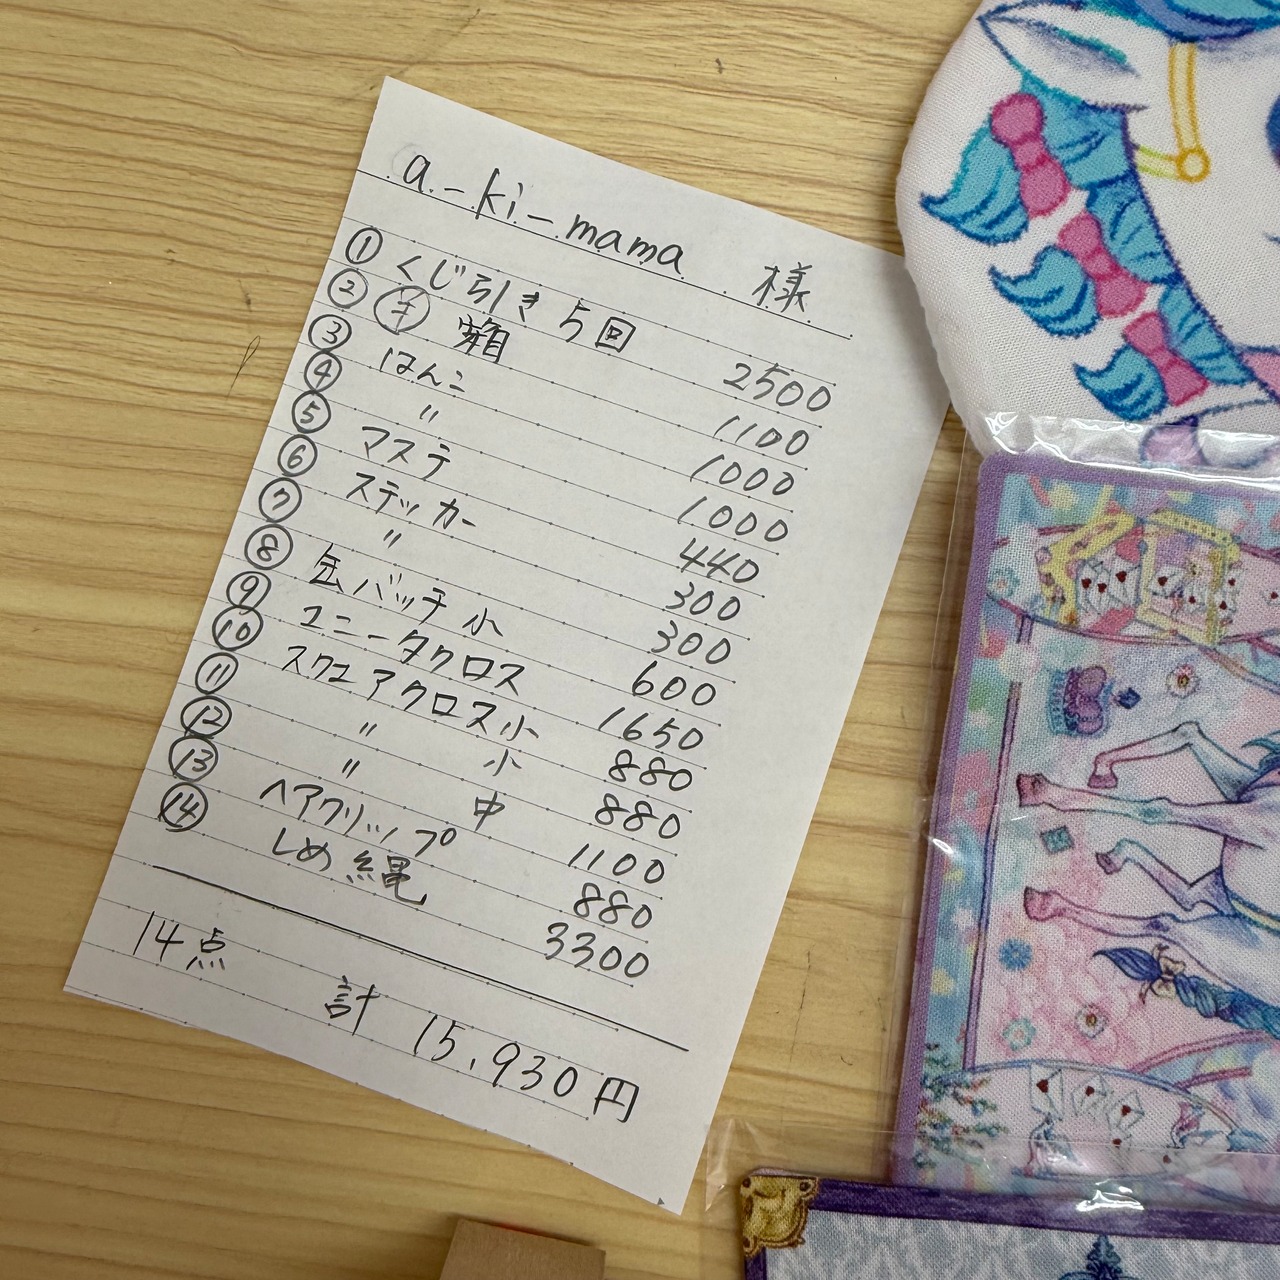 a-ki-mama 様
① くじ引き5回 2500
② 箱 1100
③ はんこ 1000
④ 〃 1000
⑤ マステ 440
⑥ ステッカー 300
⑦ 〃 300
⑧ 缶バッチ 小 600
⑨ ユニータクロス 1650
⑩ スクエアクロス小 880
⑪ 〃 小 880
⑫ 〃 中 1100
⑬ ヘアクリップ 880
⑭ しめ縄 3300
14点
計 15,930円